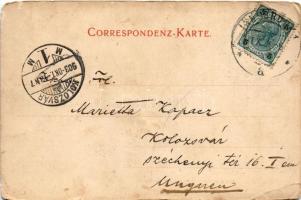 CORRESPONDENZ-KARTE.
KOLOZSVÁR
Marietta Kapacz
Kolozsvár
széchenyi tér 16. I em
Ungarn